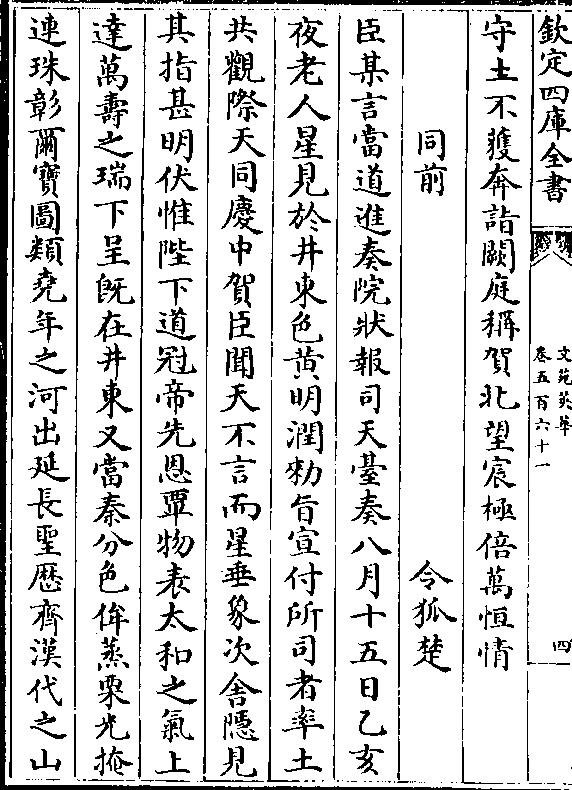 欽定四庫全書
文苑英華
卷五百六十一
四
守土不獲奔詣闕庭稱賀北望宸極倍萬恒情
同前
令狐楚
臣某言當道進奏院狀報司天臺奏八月十五日乙亥
夜老人星見於井東色黄明潤勑旨宣付所司者率土
共觀際天同慶中賀臣聞天不言而星垂象次舍隱見
其指甚明伏惟陛下道冠帝先恩覃物表太和之氣上
達萬壽之瑞下呈旣在井東又當秦分色侔蒸栗光掩
連珠彰爾寶圖類堯年之河出延長聖歷齊漢代之山